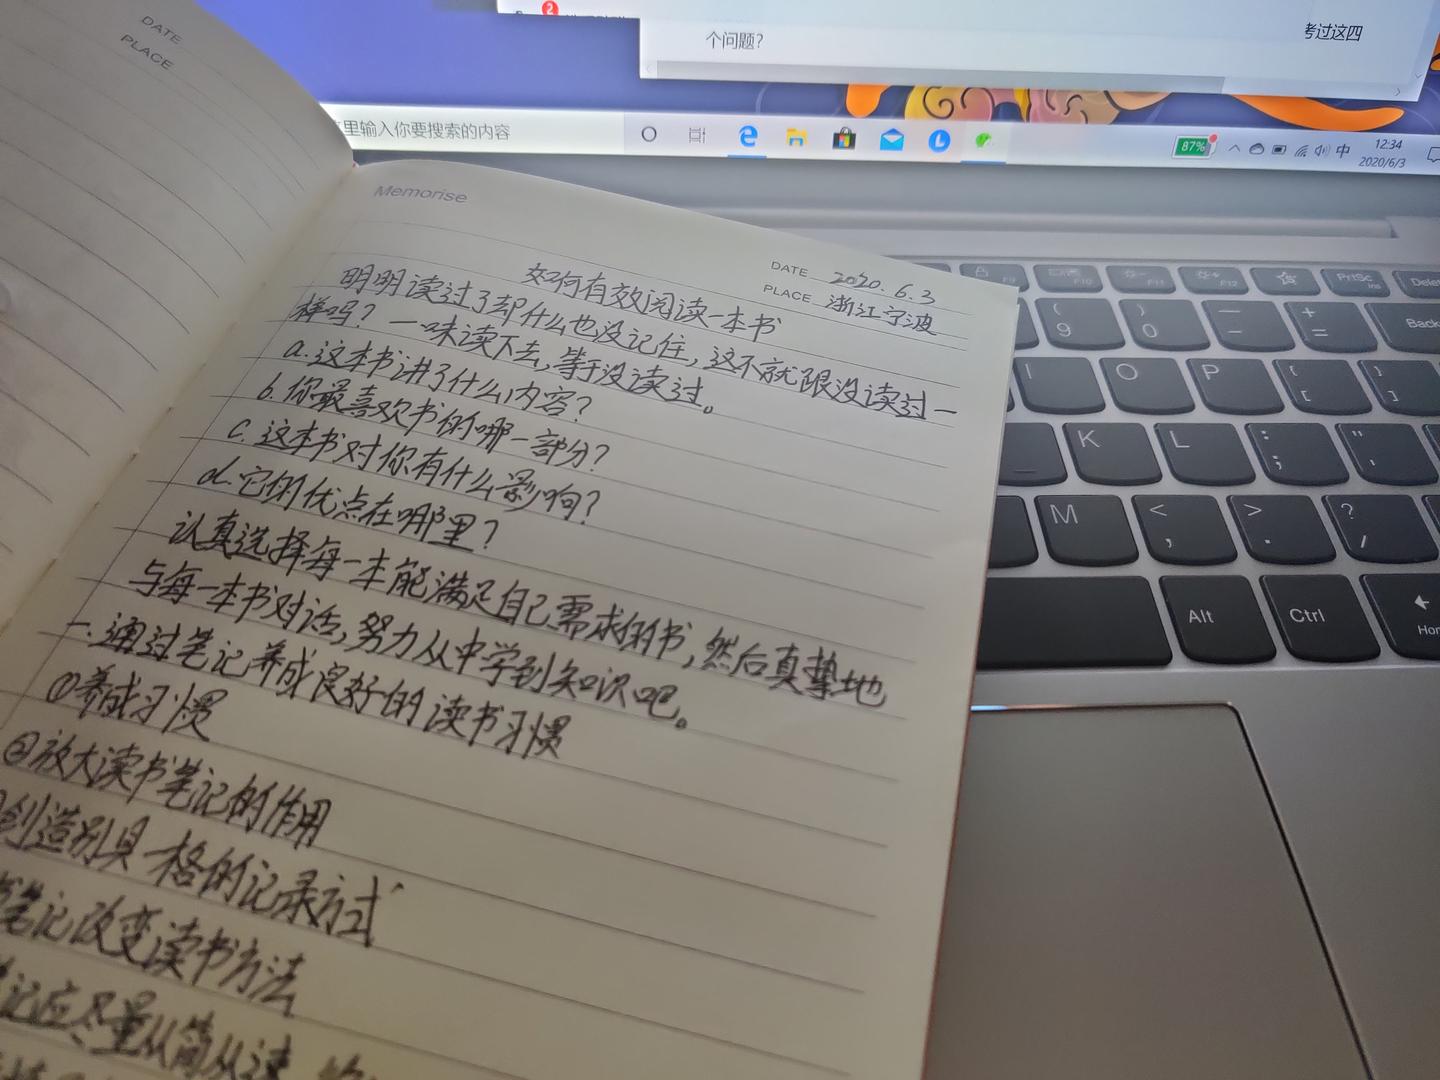 2
个问题？
考过这四
里输入你要搜索的内容
87%
中
12:34
2020/6/3
DATE
PLACE
Memorise
DATE 2020.6.3
PLACE 浙江宁波
如何有效阅读一本书
明明读过了却什么也没记住，这不就跟没读过一
样吗？一味读下去，等于没读过。
a.这本书讲了什么内容？
b.你最喜欢书的哪一部分？
c.这本书对你有什么影响？
d.它的优点在哪里？
认真选择每一本能满足自己需求的书，然后真挚地
与每一本书对话，努力从中学到知识吧。
一.通过笔记养成良好的读书习惯
①养成习惯
②放大读书笔记的作用
创造别具一格的记录方式
笔记改变读书方法
记应尽量从简从速
F9
F10
F11
F12
PrtSc
Ins
Delete
( 9
) 0
— -
+ =
Back
I
O
P
{ [
} ]
K
L
: ;
" '
M
< ,
> .
? /
Alt
Ctrl
Hom